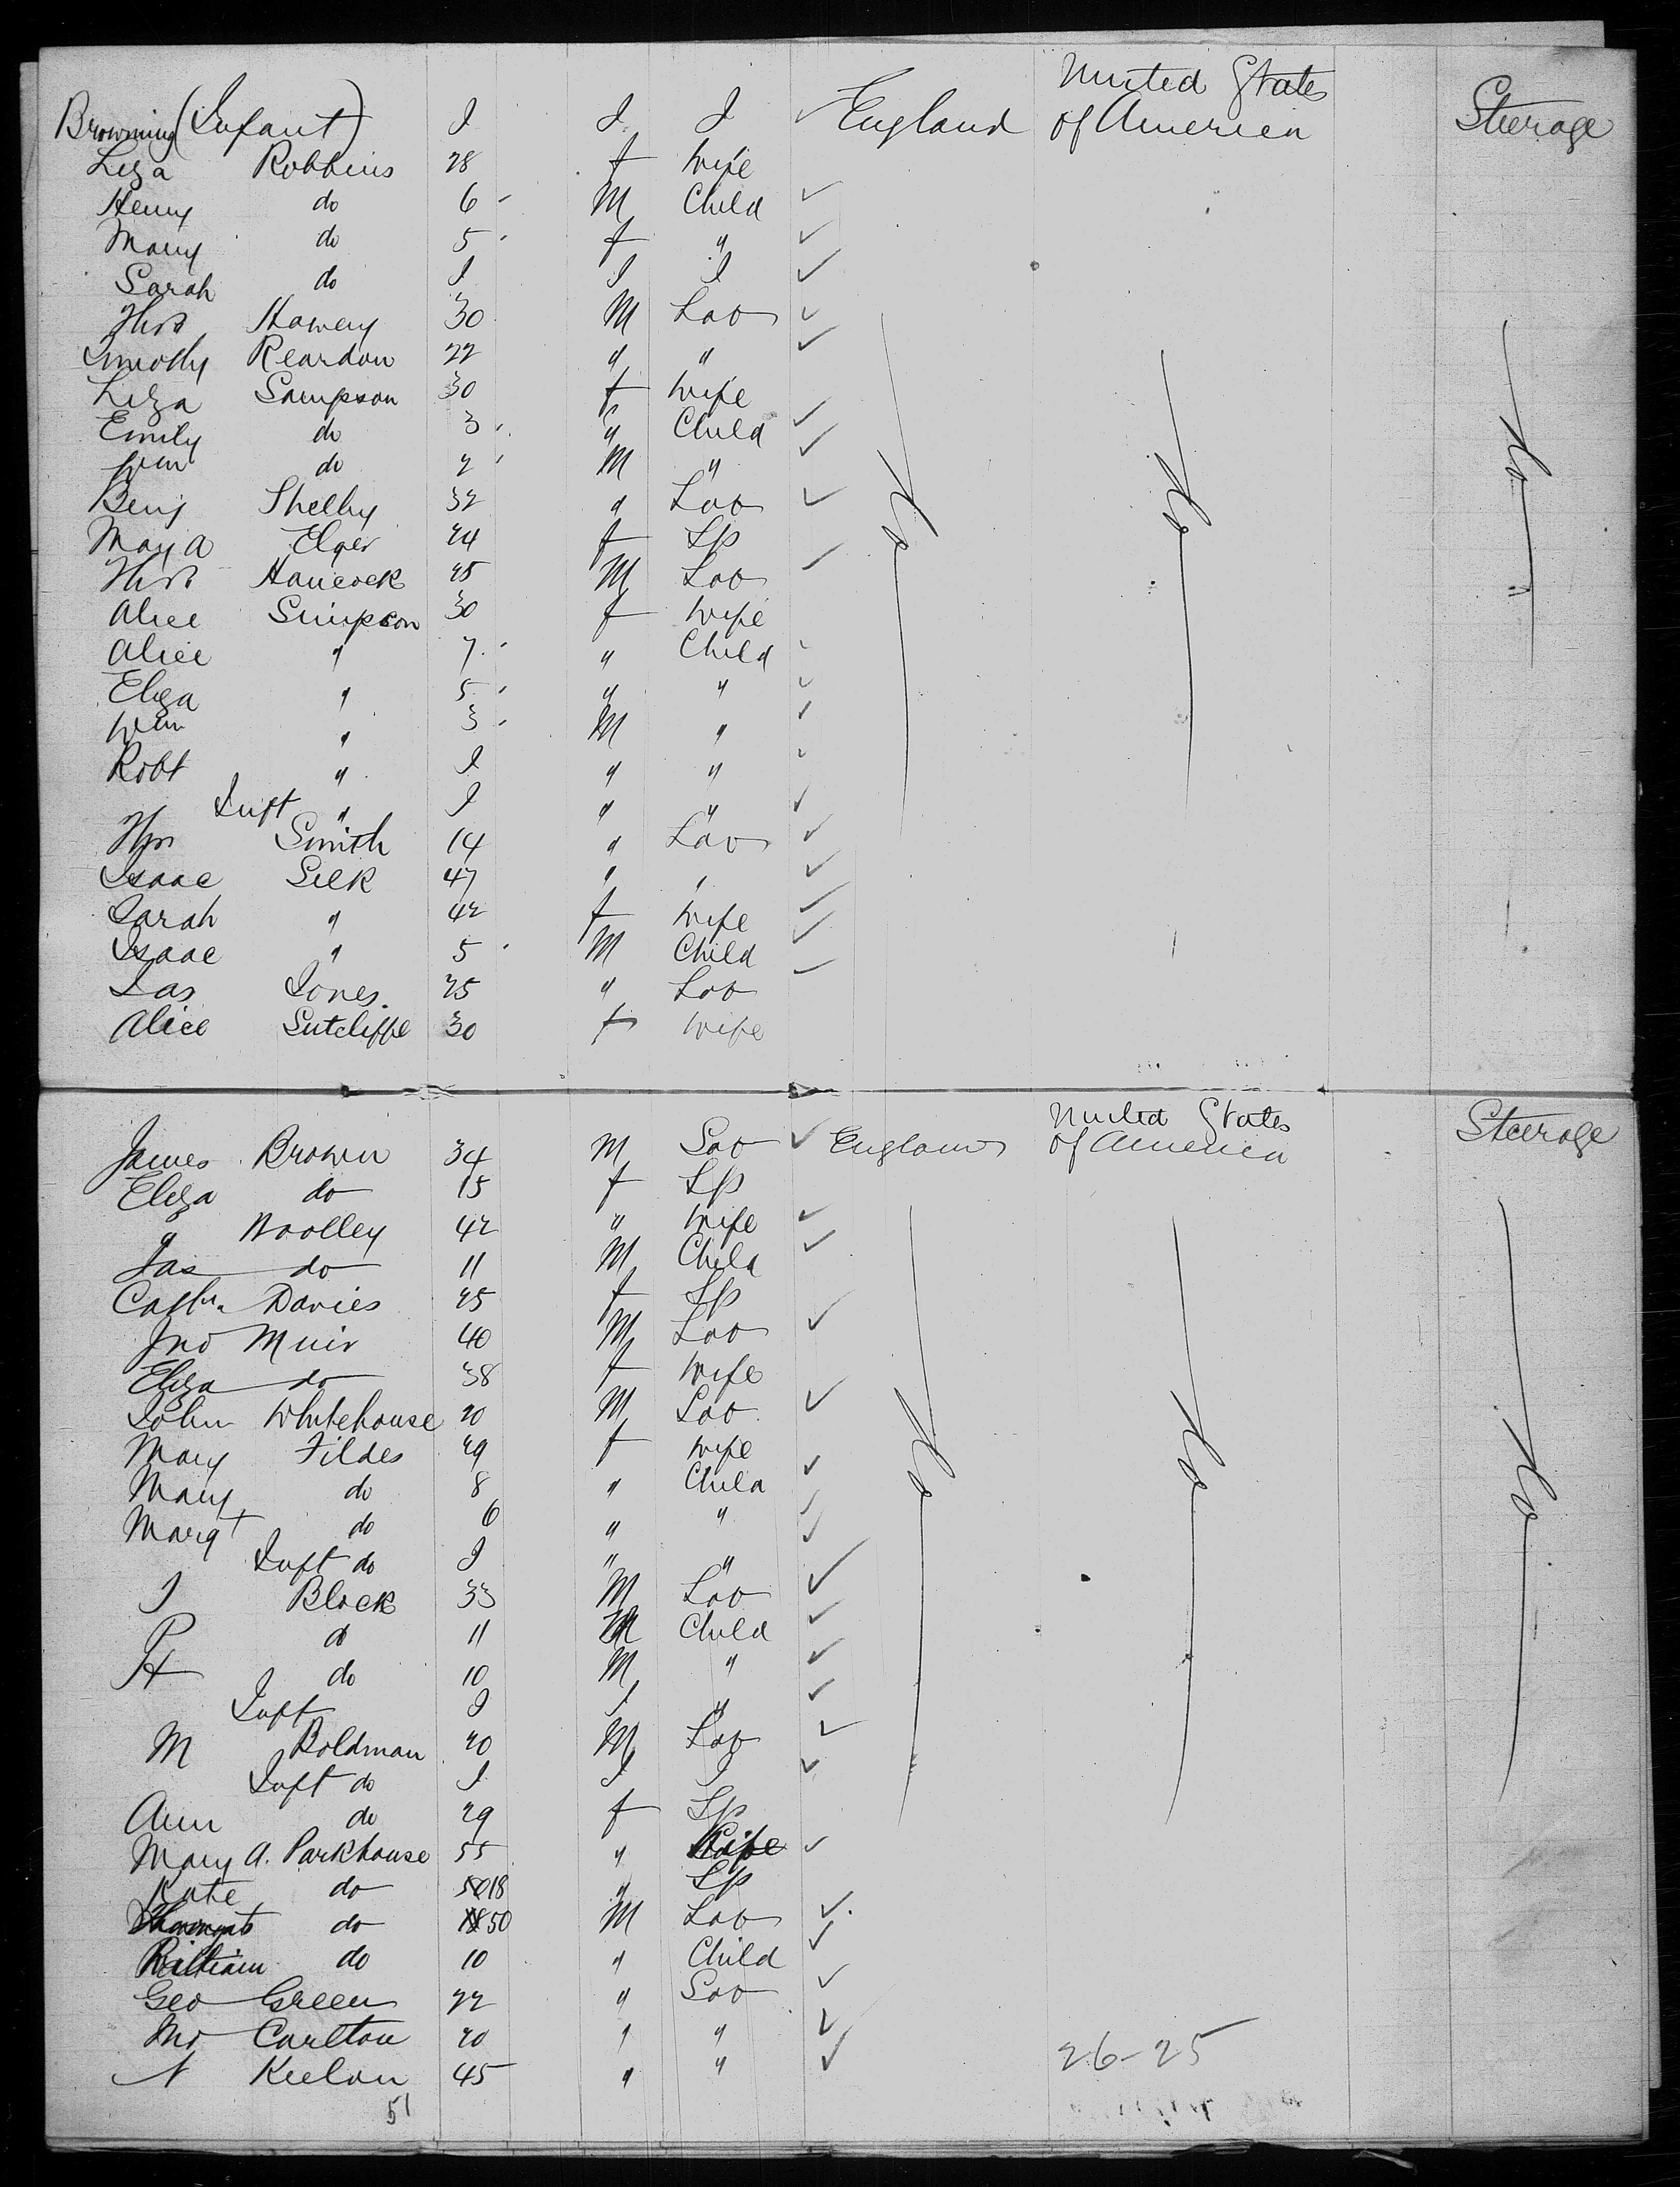 Browning (Infant) I I I ✓ England United States of America Steerage
Liza Robbins 28 f Wife
Henry do 6 M Child ✓
Mary do 5 f " ✓
Sarah do I I I ✓
Thos 30 M Lab ✓
Timothy Reardon 22 " " ✓
Liza Sampson 30 f Wife
Emily do 3 " Child ✓
Wm do 2 M " ✓
Benj Shelby 32 " Lab ✓ Do Do Do
Mary A Elger 24 f Sp
Thos Hancock 25 M Lab ✓
Alice Simpson 30 f Wife
Alice " 7 " Child ✓
Eliza " 5 " " ✓
Wm " 3 M " ✓
Robt " I " " ✓
Inft " I " " ✓
Smith 14 " Lab ✓
Isaac Silk 47 " " ✓
Sarah " 42 f Wife ✓
Isaac " 5 M Child ✓
Jas Jones. 25 " Lab ✓
Alice Sutcliffe 30 f Wife
James Brown 34 M Lab ✓ England United States of America Steerage
Eliza do 15 f Sp
" Woolley 42 " Wife ✓
Jas do 11 M Child ✓
Cathn Davies 25 f Sp
Jno Muir 40 M Lab ✓
Eliza do 38 f Wife
John Whitehouse 20 M Lab ✓
Mary Fildes 29 f Wife
Mary do 8 " Child ✓ Do Do Do
Margt do 6 " " ✓
Inft do I " " ✓
I Block 33 M Lab ✓
P do 11 M Child ✓
H do 10 M " ✓
Inft I I " ✓
M Boldman 20 M Lab ✓
Inft do I I I ✓
Ann do 29 f Sp
Mary A. Parkhouse 55 " Wife ✓
Kate do 50 18 " Sp
do 18 50 M Lab ✓
William do 10 " Child ✓
Geo Green 22 " Lab ✓
Carlton 20 " " ✓
Keelan 45 " " ✓
26-25
51